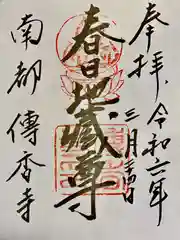 奉拝 令和六年
三月二十四日
春日地蔵尊
南都 傳香寺